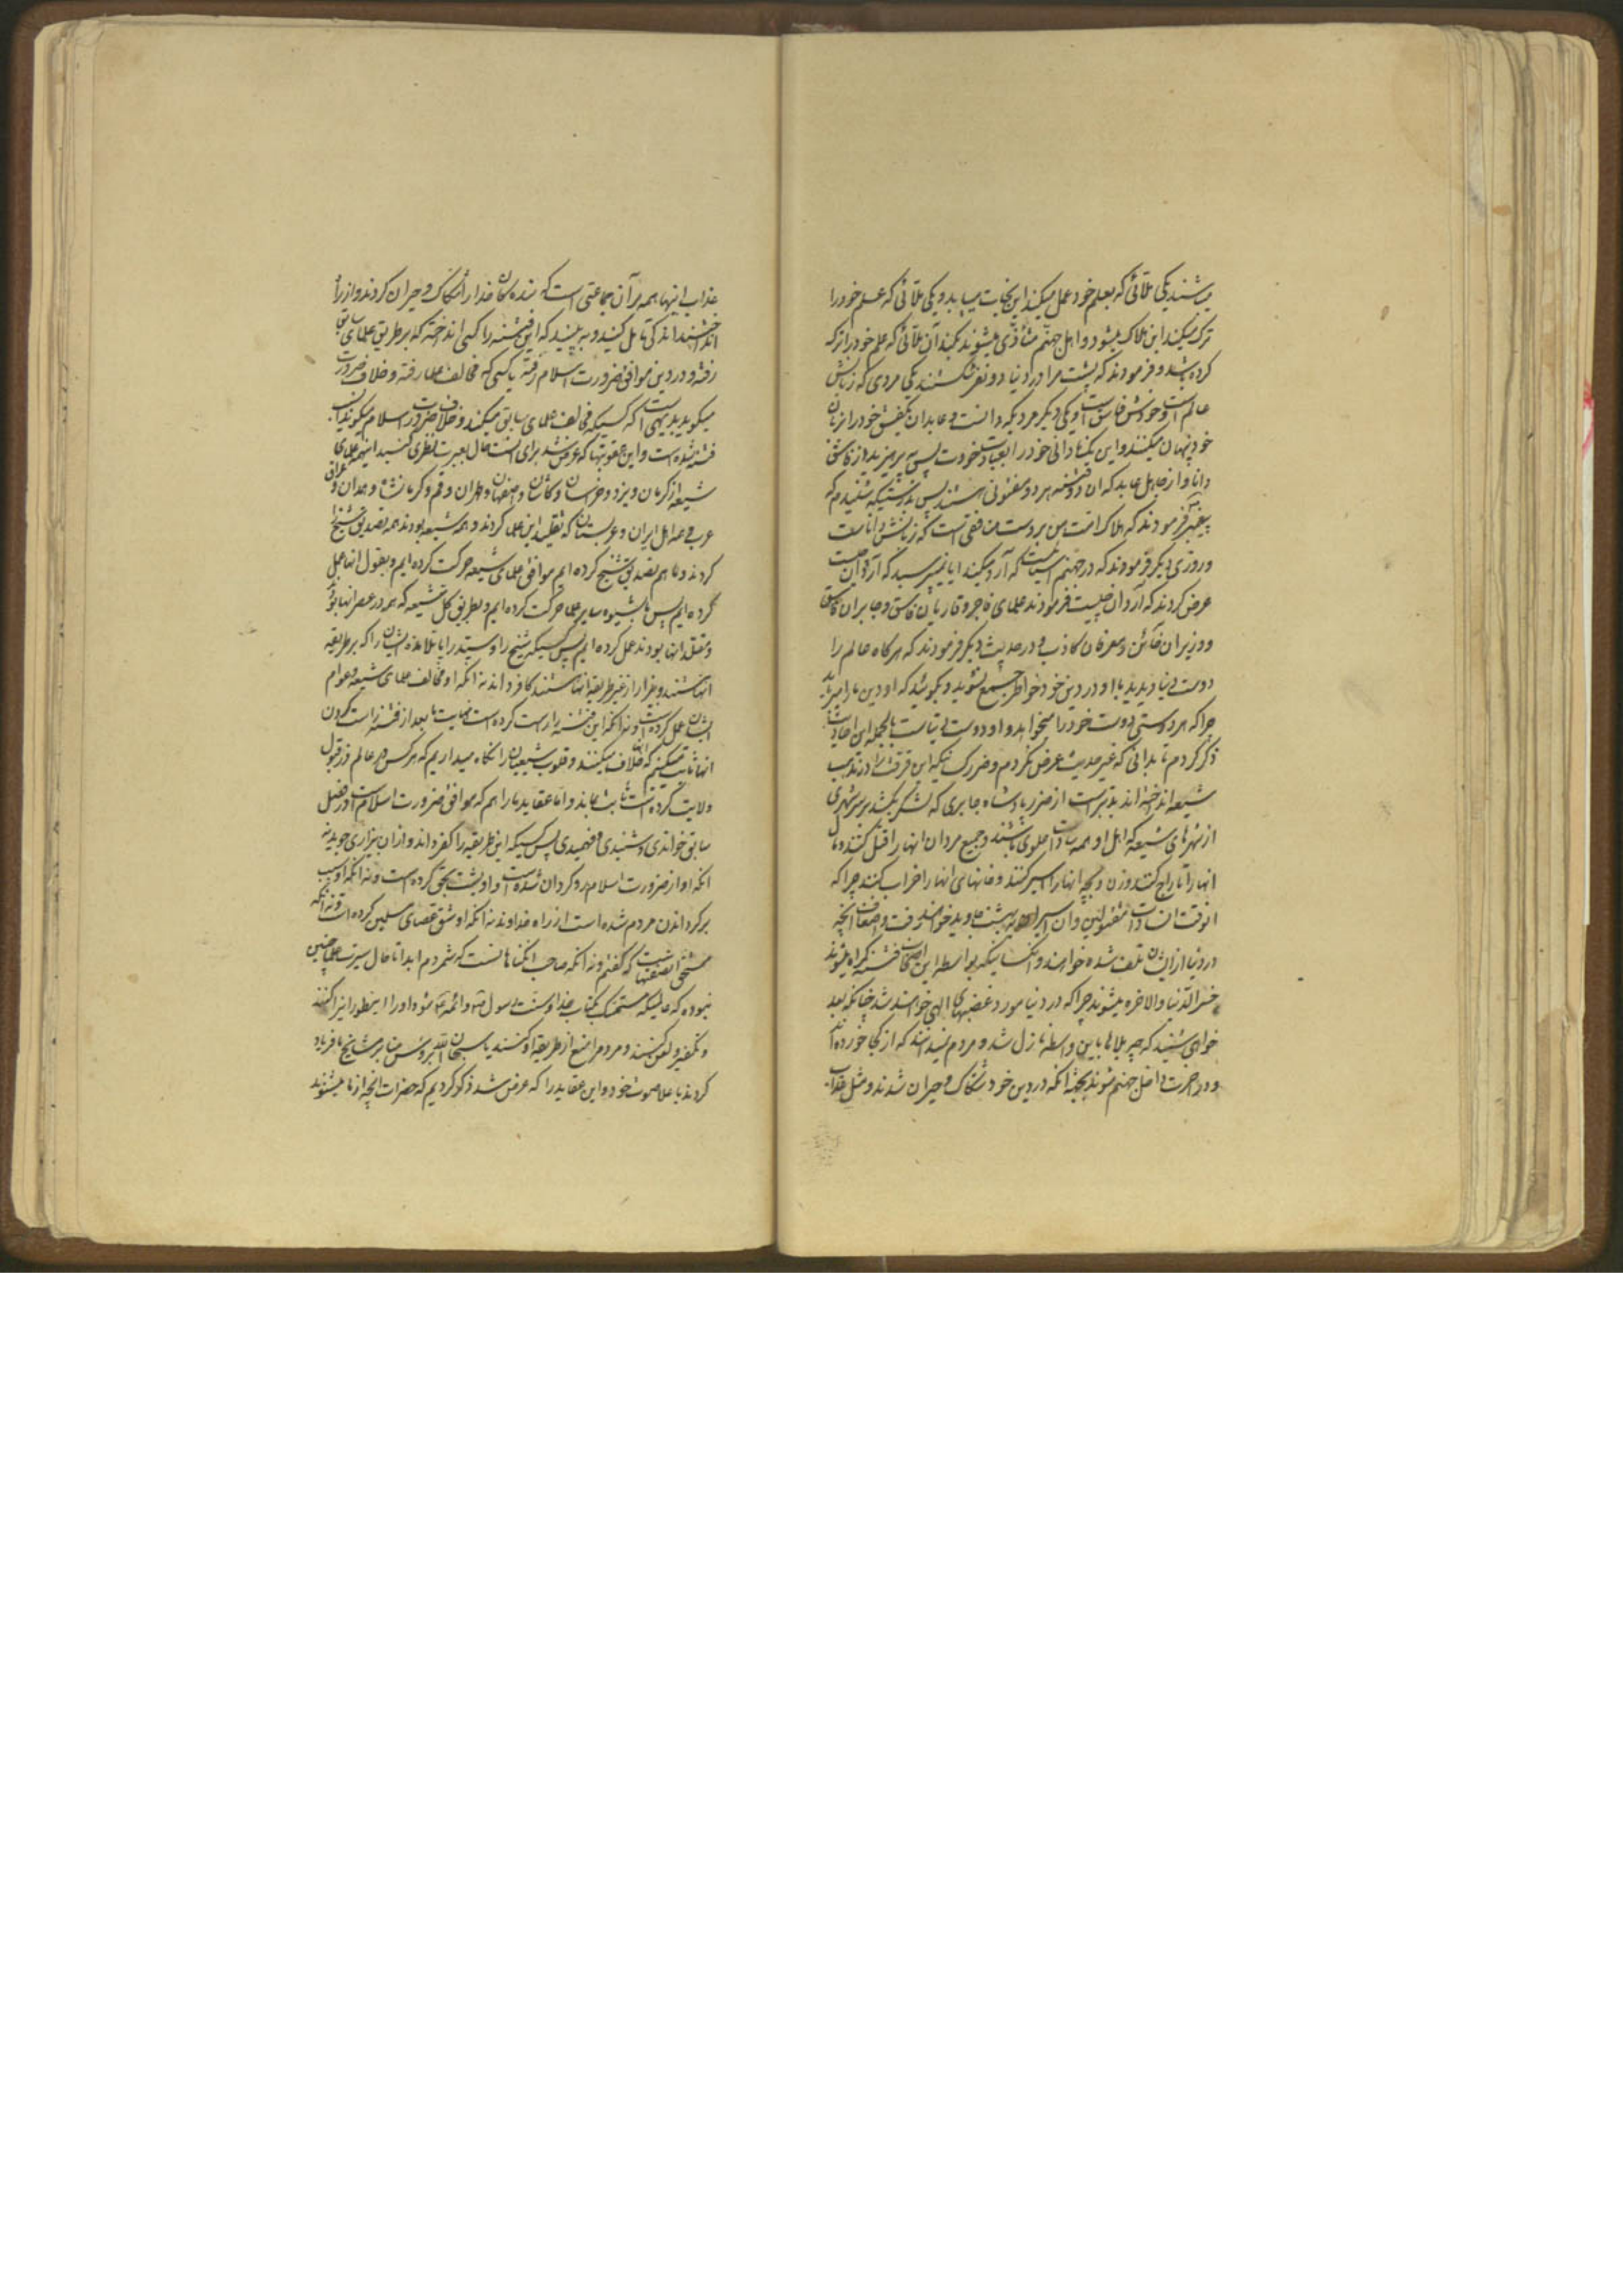 میشنید یکی ملائی که بعلم خود عمل میکند این نجات مییابد و یکی ملائی که علم خود را
ترک میکند این هلاک میشود و اهل جهنم متأذی میشوند بگند آن ملائی که علم خود را ترک
کرده باشد و فرمودند که پشت مرا در دنیا دو نفر شکستند یکی مردی که زبانش
عالم است و خودش فاسق است و یکی دیگر مردیکه نادانست و عابد ان بفسق خود را از زبان
خود پنهان میکند و این بنادانی خود را بعبادت خود پس بپرهیزید از فاسق
دانا و از جاهل عابد که ان دو فتنه هر دو مفتونی هستند پس بدرستیکه شنیدم که
پیغمبر فرمودند که هلاک امت من بر دست منافقی است که زبانش داناست
و روزی دیگر فرمودند که در جهنم آسیائیست که آرد میکند ایا نمیپرسید که آرد آن چیست
عرض کردند که آرد آن چیست فرمودند علمای فاجر و قاریان فاسق و جابران فاسق
و وزیران خائن و عرفان کاذب و در حدیث دیگر فرمودند که هرگاه عالم را
دوست دنیا دیدید با او در دین خود خاطر جمع نشوید و بگوئید که او دین ما را میبرد
چرا که هر دوستی دوست خود را میخواهد و او دوست دنیاست بالجمله این احادیث را
ذکر کردم تا بدانی که غیر حدیث عرض نکردم و ضرر کسانیکه این فرقت را در مذهب
شیعه انداخته اند بدتر است از ضرر پادشاه جابری که لشکر بکشد بر سر شهری
از شهرهای شیعه که اهل او همه سادات علوی باشند و جمیع مردان انها را قتل کنند و مال
انها را تاراج کنند و زن و بچه انها را اسیر کنند و خانهای انها را خراب کنند چرا که
انوقت ان سادات مقتولین و ان اسیران به بهشت جاوید خواهند رفت و اضعاف آنچه
در دنیا از ایشان تلف شده خواهند و انکسانیکه بواسطه این اصحاب فتنه گمراه میشوند
خسر الدنیا و الاخره میشوند چرا که در دنیا مورد غضبهای الهی خواهند شد چنانکه بعد
خواهی شنید که چه بلاها باین واسطه نازل شد و مردم نمیدانند که از کجا خورده اند
و در اخرت داخل جهنم شوند بجهة انکه در دین خود شکاک و حیران شدند و مثل عذاب
عذاب اینها همه بر آن جماعتی است که بنده گان خدا را شکاک و حیران کردند و از راه
انداختند اندکی تأمل کنید و به بینید که این فتنه را کسی انداخته که بر طریق علمای سابق
رفته و در دین موافق ضرورت اسلام رفته یا کسی که مخالف علما رفته و خلاف ضرورت
میگوید بدیهی است که کسیکه مخالف علمای سابق میکند و خلاف ضرورت اسلام میگوید انسب
فتنه شده است و این عقوبتها که عرض شد برای انست حال بعبرت نظری کنید اینهمه علمای
شیعه از کرمان و یزد و خراسان و کاشان و اصفهان و طهران و قم و کرمانشاه و همدان و عراق
عرب و عمه اهل ایران و عربستان که تقلید این علما کردند و همه شیعه بودند همه تصدیق شیخ
کردند و ما هم تصدیق شیخ کرده ایم موافق علمای شیعه حرکت کرده ایم و بقول انها عمل
کرده ایم پس ما بشیوه سایر علما حرکت کرده ایم و بطریق کل شیعه که در عصر انها بود
و مقلد انها بودند عمل کرده ایم پس کسیکه شیخ را و سید را یا تلامذه ایشان را که بر طریقه
انها هستند و بیزار از غیر طریقه انها هستند کافر داند نه انکه او مخالف علمای شیعه و عوام
ایشان عمل کرده است و نه انکه این فتنه را راست کرده است نهایت ما بعد از فتنه راست کردن
انها ثابت میکنیم که خلاف میکنند و قلوب شیعیان را نگاه میداریم که هر کس در عالم ذر قبول
ولایت کرده است ثابت بماند و اما عقاید ما را هم که موافق ضرورت اسلام است در فصل
سابق خواندی و شنیدی و فهمیدی پس کسیکه این طریقه را کفر داند و از ان بیزاری جوید نه
انکه او از ضرورت اسلام رو گردان شده است و او پشت بحق کرده است و نه انکه او سبب
برگرداندن مردم شده است از راه خداوند نه انکه او شق عصای مسلمین کرده است و نه انکه
مستحق ان صفتها نیست که گفتم و نه انکه صاحب انگناها نیست که شمردم ابدا تا حال سیرت علما چنین
نبوده که عالمیکه متمسک بکتاب خدا و سنت رسول الله و ائمه شود او را اینطور ایذا کنند
و تکفیر و لعن کنند و مردم را منع از طریقه او کنند یا سبحان الله بروس منابر مشایخ ما فریاد
کردند با علا صوت خود و این عقاید را که عرض شد ذکر کردیم که حضرات انچه از ما میشنوند